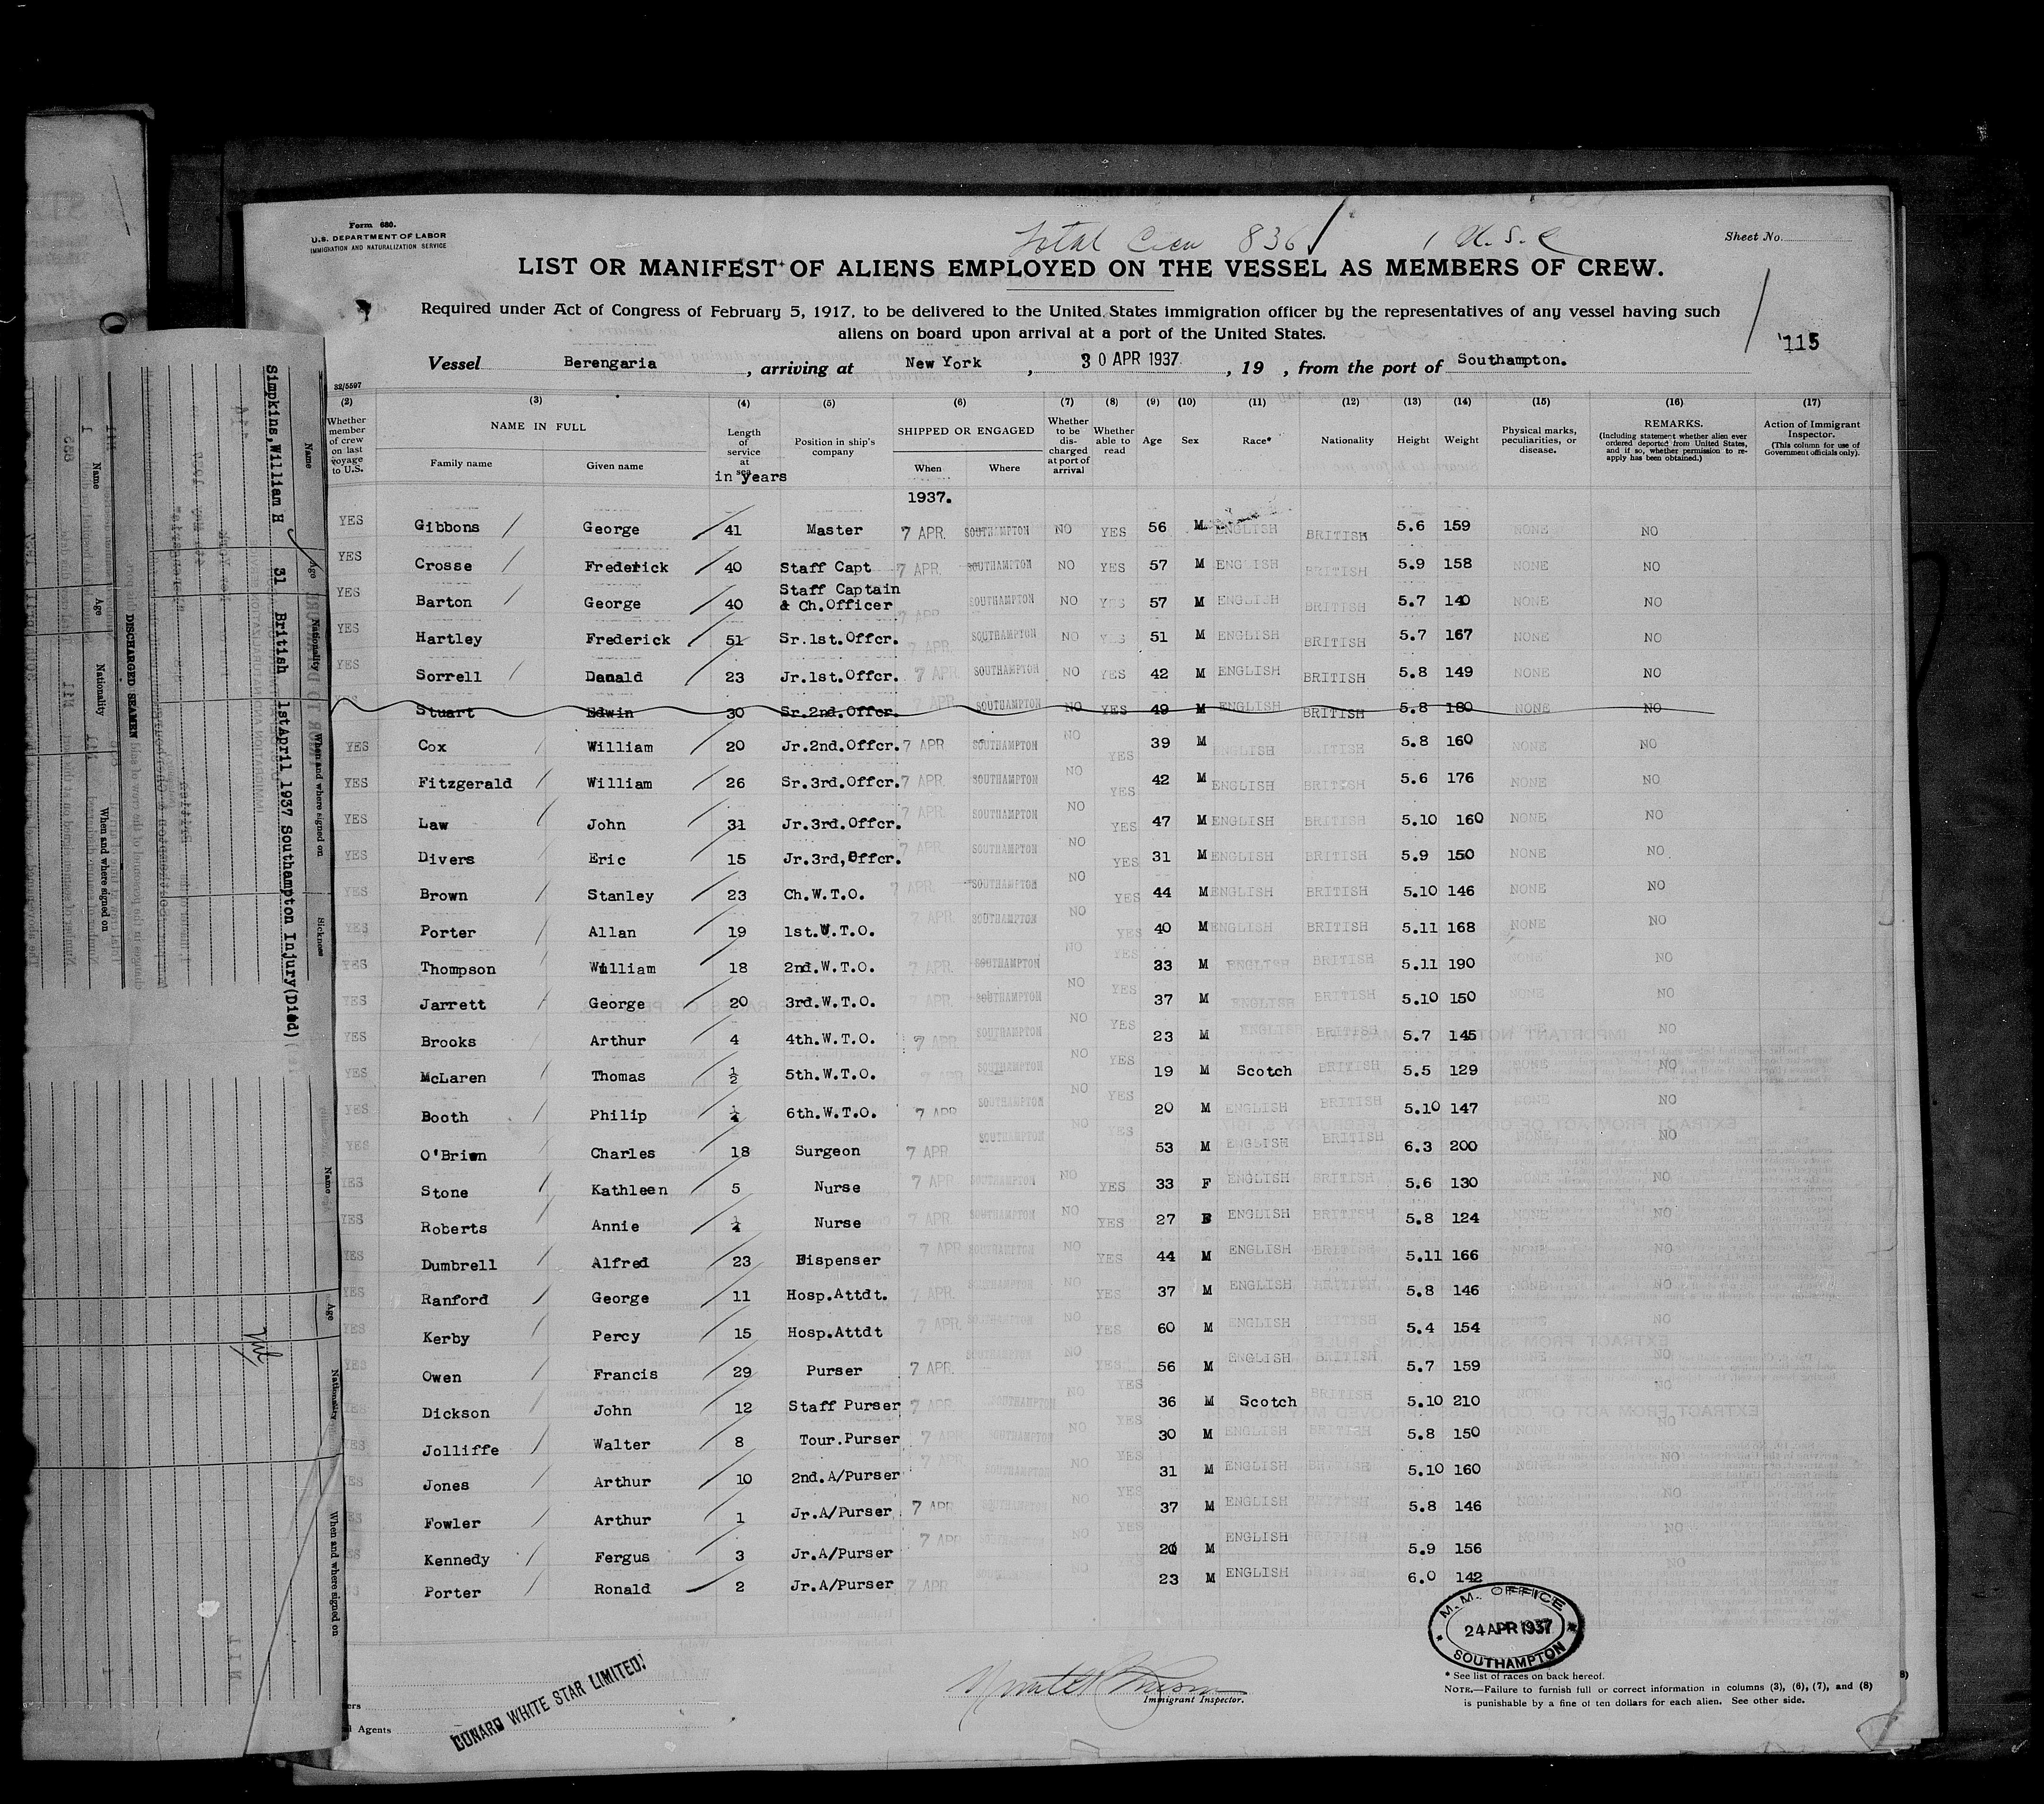 Form 680.
U.S. DEPARTMENT OF LABOR
IMMIGRATION AND NATURALIZATION SERVICE
Total Crew 836 1 U.S.C
Sheet No.
LIST OR MANIFEST OF ALIENS EMPLOYED ON THE VESSEL AS MEMBERS OF CREW.
Required under Act of Congress of February 5, 1917, to be delivered to the United States immigration officer by the representatives of any vessel having such
aliens on board upon arrival at a port of the United States.
115
Vessel Berengaria, arriving at New York, 30 APR 1937, 19 , from the port of Southampton.
32/5597
(2) (3) (4) (5) (6) (7) (8) (9) (10) (11) (12) (13) (14) (15) (16) (17)
Whether member of crew on last voyage to U.S. NAME IN FULL Family name Given name Length of service at sea in years Position in ship's company SHIPPED OR ENGAGED When Where Whether to be discharged at port of arrival Whether able to read Age Sex Race* Nationality Height Weight Physical marks, peculiarities, or disease. REMARKS. (Including statement whether alien ever ordered deported from United States, and if so, whether permission to reapply has been obtained.) Action of Immigrant Inspector. (This column for use of Government officials only).
1937.
YES Gibbons George 41 Master 7 APR. SOUTHAMPTON NO YES 56 M ENGLISH BRITISH 5.6 159 NONE NO
YES Crosse Frederick 40 Staff Capt 7 APR. SOUTHAMPTON NO YES 57 M ENGLISH BRITISH 5.9 158 NONE NO
YES Barton George 40 Staff Captain & Ch.Officer 7 APR SOUTHAMPTON NO YES 57 M ENGLISH BRITISH 5.7 140 NONE NO
YES Hartley Frederick 51 Sr.1st.Offcr. 7 APR. SOUTHAMPTON NO YES 51 M ENGLISH BRITISH 5.7 167 NONE NO
YES Sorrell Donald 23 Jr.1st.Offcr. 7 APR SOUTHAMPTON NO YES 42 M ENGLISH BRITISH 5.8 149 NONE NO
YES Stuart Edwin 30 Sr.2nd.Offcr. 7 APR SOUTHAMPTON NO YES 49 M ENGLISH BRITISH 5.8 180 NONE NO
YES Cox William 20 Jr.2nd.Offcr. 7 APR SOUTHAMPTON NO YES 39 M ENGLISH BRITISH 5.8 160 NONE NO
YES Fitzgerald William 26 Sr.3rd.Offcr. 7 APR. SOUTHAMPTON NO YES 42 M ENGLISH BRITISH 5.6 176 NONE NO
YES Law John 31 Jr.3rd.Offcr. 7 APR. SOUTHAMPTON NO YES 47 M ENGLISH BRITISH 5.10 160 NONE NO
YES Divers Eric 15 Jr.3rd,Offcr. 7 APR. SOUTHAMPTON NO YES 31 M ENGLISH BRITISH 5.9 150 NONE NO
YES Brown Stanley 23 Ch.W.T.O. 7 APR. SOUTHAMPTON NO YES 44 M ENGLISH BRITISH 5.10 146 NONE NO
YES Porter Allan 19 1st.W.T.O. 7 APR. SOUTHAMPTON NO YES 40 M ENGLISH BRITISH 5.11 168 NONE NO
YES Thompson William 18 2nd.W.T.O. 7 APR. SOUTHAMPTON NO YES 33 M ENGLISH BRITISH 5.11 190 NONE NO
YES Jarrett George 20 3rd.W.T.O. 7 APR. SOUTHAMPTON NO YES 37 M ENGLISH BRITISH 5.10 150 NONE NO
YES Brooks Arthur 4 4th.W.T.O. 7 APR SOUTHAMPTON NO YES 23 M ENGLISH BRITISH 5.7 145 NO
YES McLaren Thomas ½ 5th.W.T.O. 7 APR SOUTHAMPTON NO YES 19 M Scotch BRITISH 5.5 129 NONE NO
YES Booth Philip ¼ 6th.W.T.O. 7 APR SOUTHAMPTON NO YES 20 M ENGLISH BRITISH 5.10 147 NO
YES O'Brien Charles 18 Surgeon 7 APR SOUTHAMPTON NO YES 53 M ENGLISH BRITISH 6.3 200 NONE NO
YES Stone Kathleen 5 Nurse 7 APR. SOUTHAMPTON NO YES 33 F ENGLISH BRITISH 5.6 130 NONE NO
YES Roberts Annie ¼ Nurse 7 APR. SOUTHAMPTON NO YES 27 F ENGLISH BRITISH 5.8 124 NONE NO
YES Dumbrell Alfred 23 Dispenser 7 APR SOUTHAMPTON NO YES 44 M ENGLISH BRITISH 5.11 166 NONE NO
YES Ranford George 11 Hosp.Attdt. 7 APR. SOUTHAMPTON NO YES 37 M ENGLISH BRITISH 5.8 146 NONE NO
YES Kerby Percy 15 Hosp.Attdt 7 APR. SOUTHAMPTON NO YES 60 M ENGLISH BRITISH 5.4 154 NO
YES Owen Francis 29 Purser 7 APR. SOUTHAMPTON NO YES 56 M ENGLISH BRITISH 5.7 159 NO
YES Dickson John 12 Staff Purser 7 APR. SOUTHAMPTON NO YES 36 M Scotch BRITISH 5.10 210 NONE NO
YES Jolliffe Walter 8 Tour.Purser 7 APR SOUTHAMPTON NO YES 30 M ENGLISH BRITISH 5.8 150 NONE NO
YES Jones Arthur 10 2nd.A/Purser 7 APR SOUTHAMPTON NO YES 31 M ENGLISH BRITISH 5.10 160 NONE NO
YES Fowler Arthur 1 Jr.A/Purser 7 APR SOUTHAMPTON NO YES 37 M ENGLISH BRITISH 5.8 146 NONE NO
Kennedy Fergus 3 Jr.A/Purser 7 APR SOUTHAMPTON NO YES 20 M ENGLISH BRITISH 5.9 156 NONE NO
Porter Ronald 2 Jr.A/Purser 7 APR SOUTHAMPTON NO 23 M ENGLISH BRITISH 6.0 142 NO
M.M. OFFICE
24 APR 1937
SOUTHAMPTON
CUNARD WHITE STAR LIMITED
Agents
Immigrant Inspector.
* See list of races on back hereof.
NOTE.—Failure to furnish full or correct information in columns (3), (6), (7), and (8)
is punishable by a fine of ten dollars for each alien. See other side.
Name Age Nationality When and where signed on Sickness
Simpkins,William H 31 British 1stApril 1937 Southampton Injury(Died)
Name Age Nationality When and where signed on
Nil
DISCHARGED SEAMEN
Name Age Nationality When and where signed on